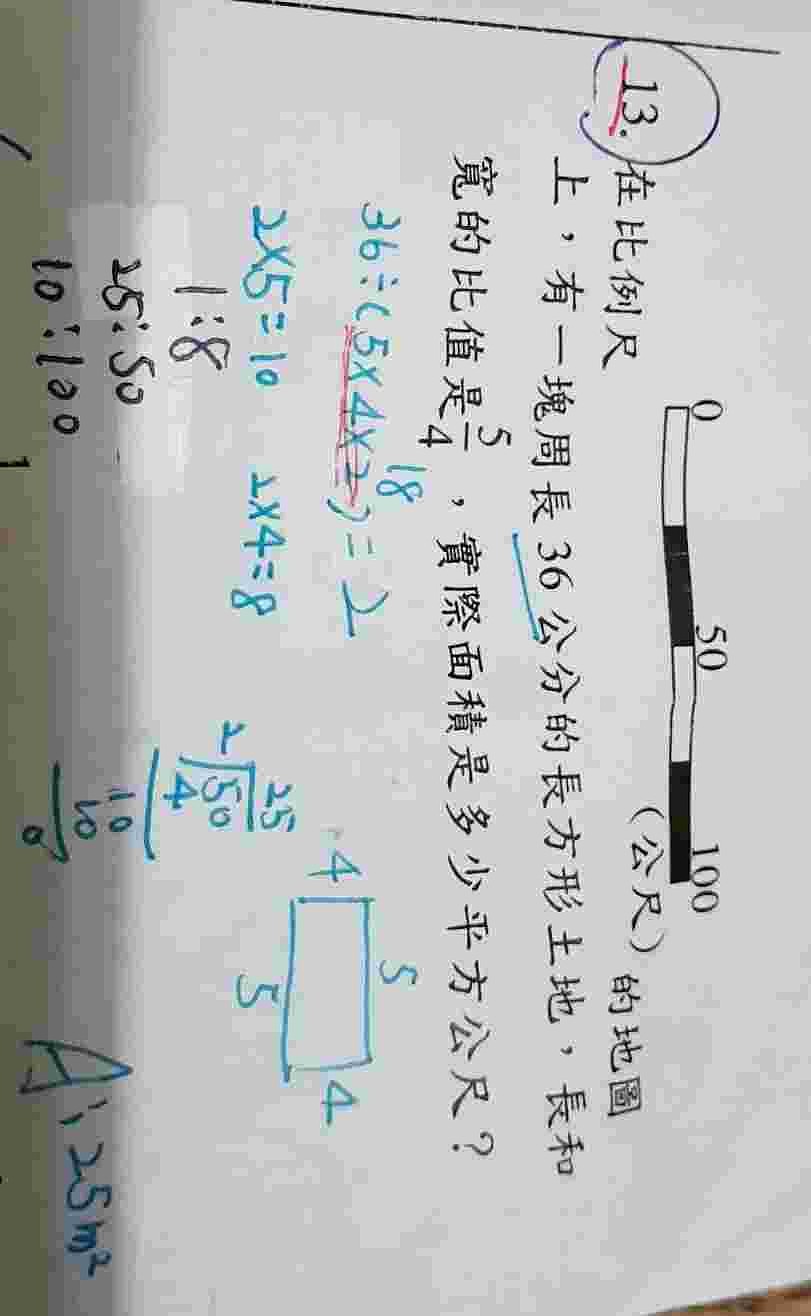 13. 在比例尺 0 50 100 (公尺) 的地圖
上，有一塊周長 36 公分的長方形土地，長和
寬的比值是 5/4 ，實際面積是多少平方公尺？
18
36÷(5×4×2)=2
2×5=10 2×4=8
1:8
25:50
10:100
5
4 4
5
25
2 50
4
10
10
0
A:25m²